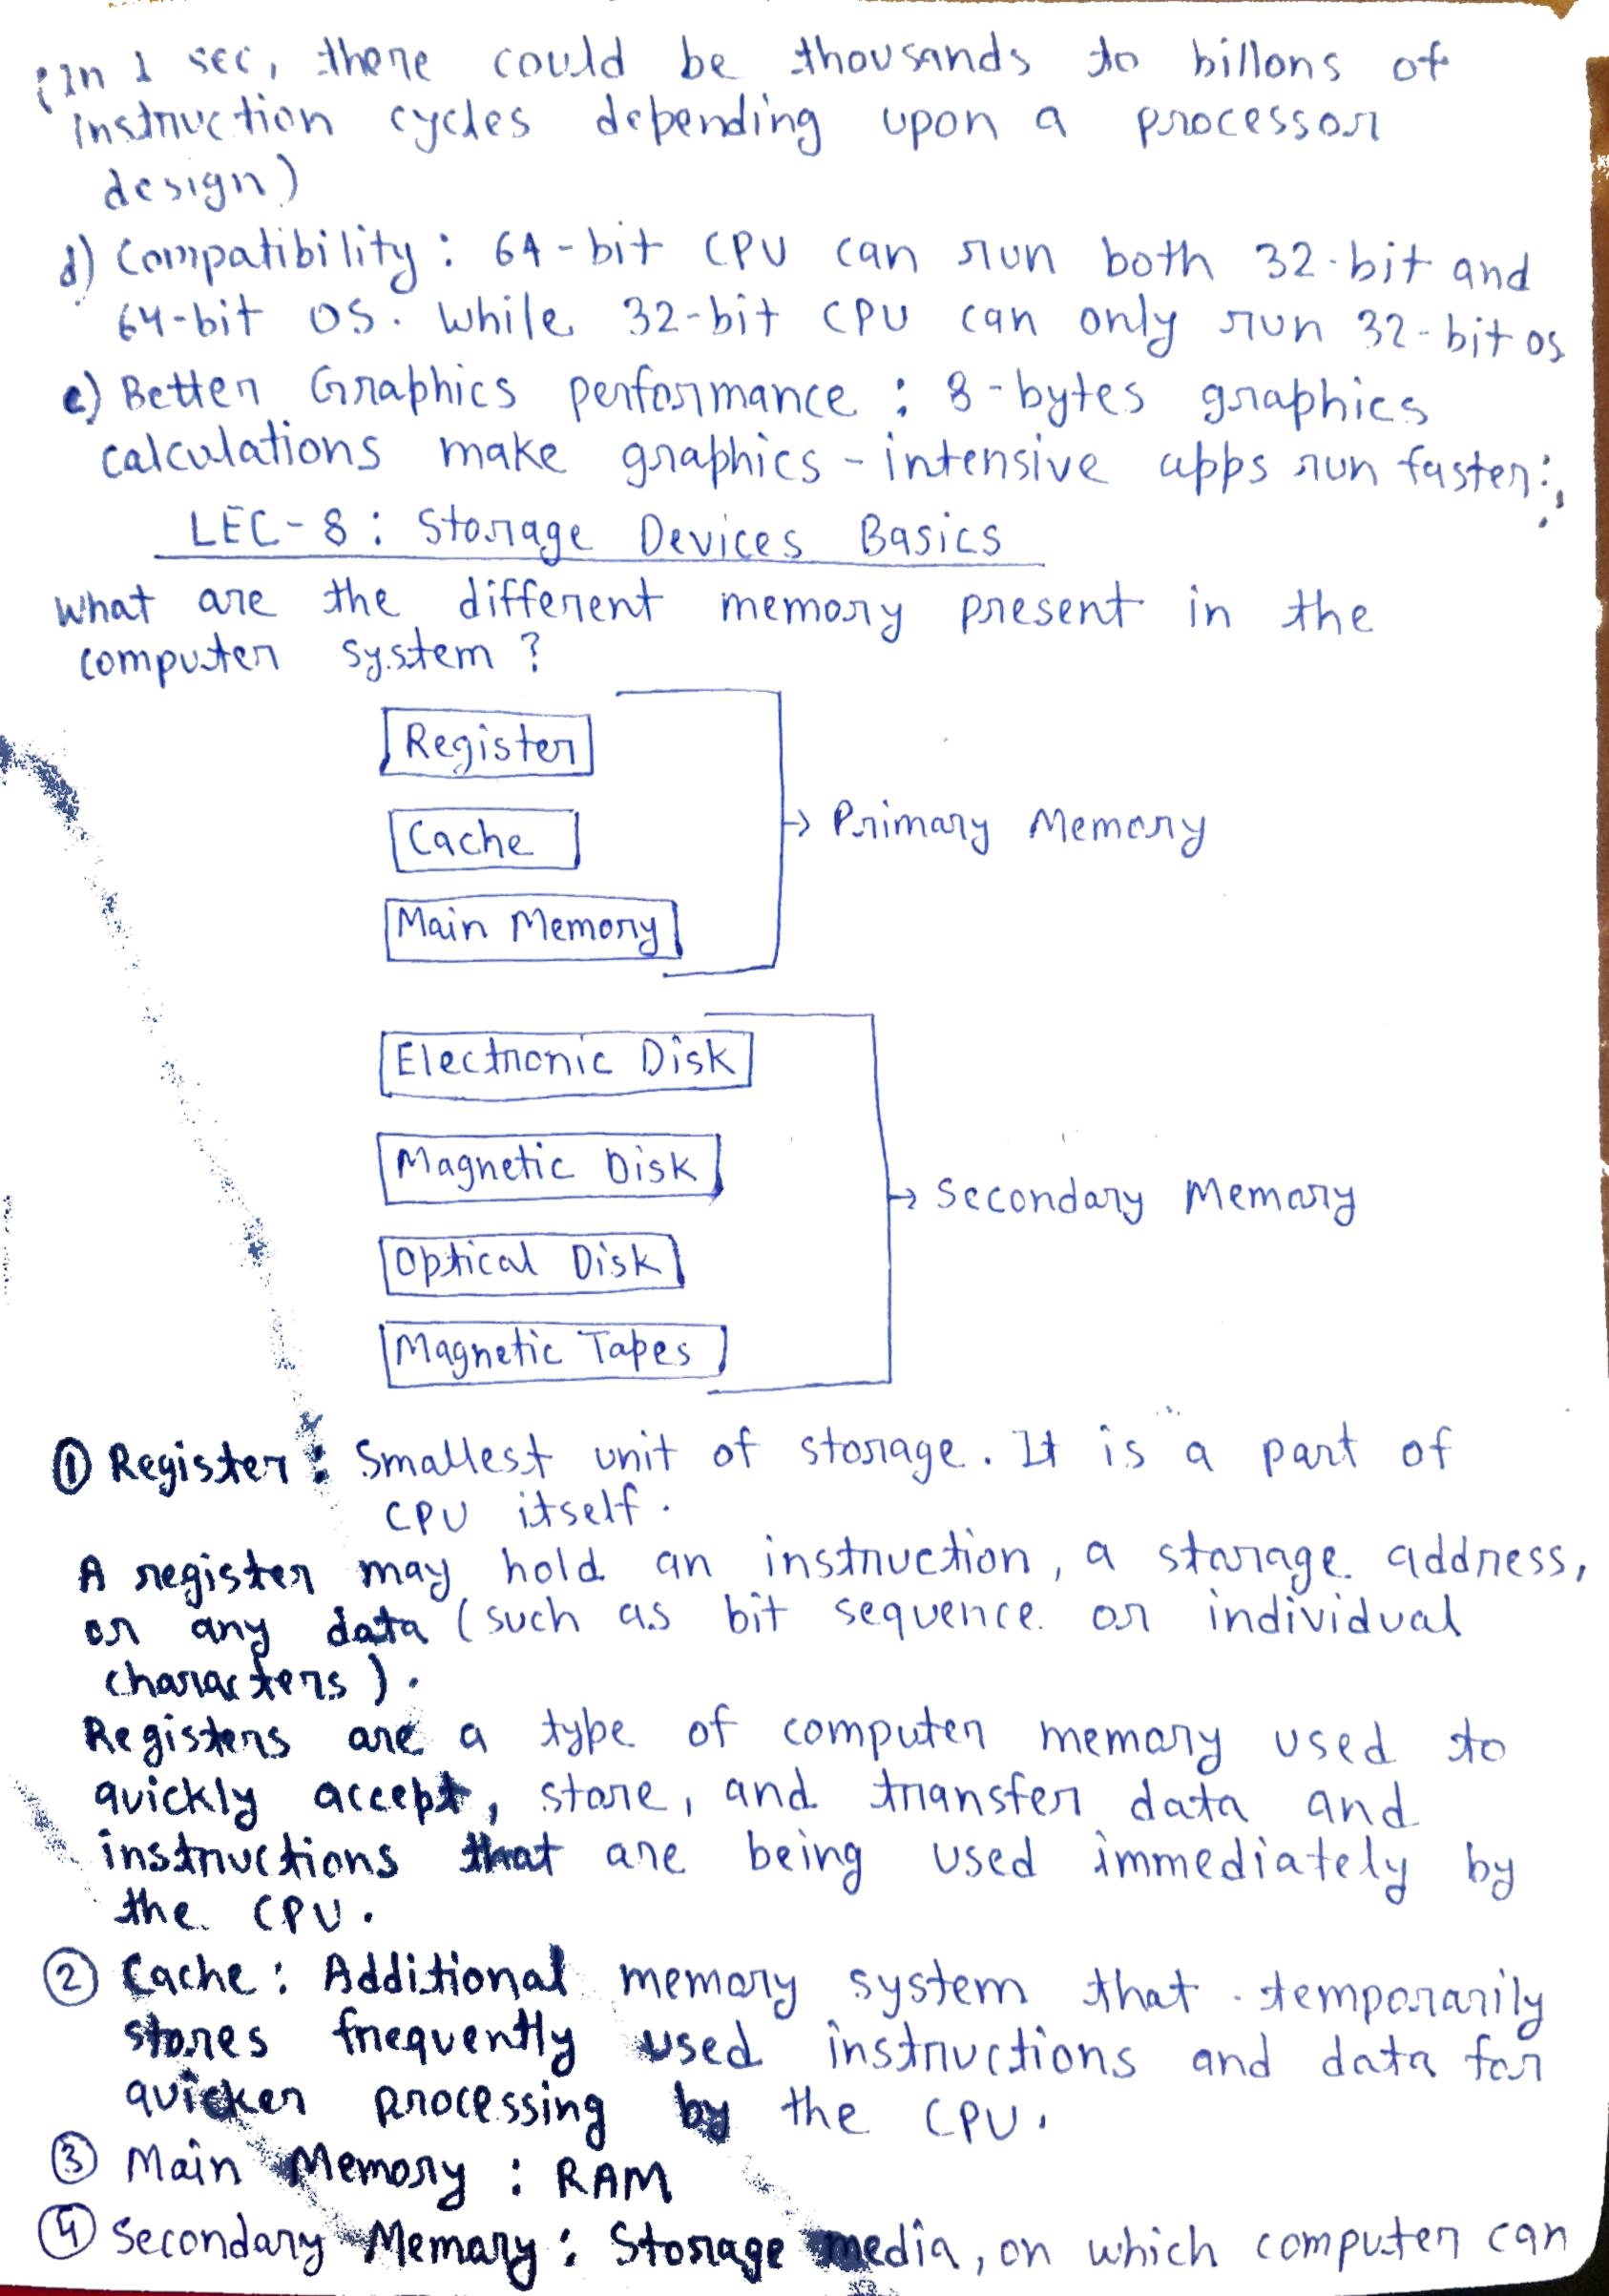 (In 1 sec, there could be thousands to billons of
instruction cycles depending upon a processor
design)
d) Compatibility : 64-bit CPU can run both 32-bit and
64-bit OS. While 32-bit CPU can only run 32-bit os
e) Better Graphics performance : 8-bytes graphics
calculations make graphics-intensive apps run faster;
LEC-8 : Storage Devices Basics
What are the different memory present in the
computer system ?
Register
Cache
→ Primary Memory
Main Memory
Electronic Disk
Magnetic Disk
→ Secondary Memory
Optical Disk
Magnetic Tapes
① Register : Smallest unit of storage. It is a part of
CPU itself.
A register may hold an instruction, a storage address,
or any data (such as bit sequence or individual
characters).
Registers are a type of computer memory used to
quickly accept, store, and transfer data and
instructions that are being used immediately by
the CPU.
② Cache : Additional memory system that temporarily
stores frequently used instructions and data for
quicker processing by the CPU.
③ Main Memory : RAM
④ Secondary Memory : Storage media, on which computer can